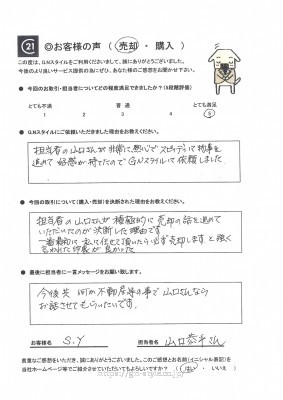 21 ◎お客様の声（ 売却 ・ 購入 ）
この度は、G.Nスタイルをご利用くださいまして、誠にありがとうございました。
今後のより良いサービス提供の為にぜひ、あなた様のご感想をお聞かせ下さい。
● 今回のお取引・担当者についてどの程度満足できましたか？（5段階評価）
とても不満 普通 とても満足
1 2 3 4 5
● G.Nスタイルにご依頼いただきました理由をお教えください。
担当者の山口さんが非常に熱心でスピーディに物事を
進めて好感が持てたのでGNスタイルに依頼しました
● 今回の取引について（購入・売却）を決断された理由をお教えください。
担当者の山口さんが積極的に売却の話を進めて
いただいたのが決断した理由です
一番最初に 私に任せて頂いたら必ず売却しますと強く
言われた印象が良かった
● 最後に担当者に一言メッセージをお願い致します。
今後共 何か不動産等の事で山口さんなら
お話させてもらいたいです。
お客様名 S.Y 担当者名 山口恭平さん
貴重なご感想をいただき、誠にありがとうございました。このご感想とお名前（イニシャル表記）を
当社ホームページ等でご紹介させていただいてもよろしいですか？（ はい ・ いいえ ）